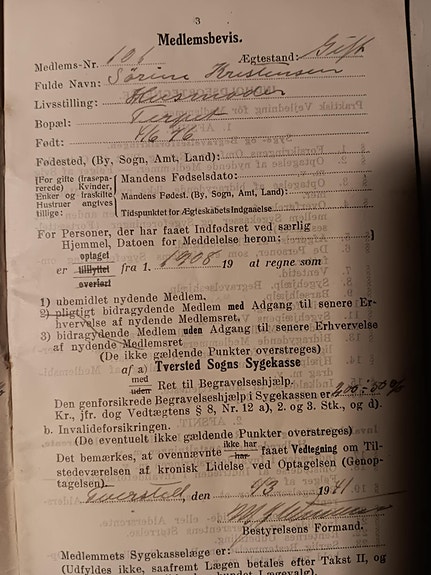 3
Medlemsbevis.
Medlems-Nr. 106 Ægtestand: Gift
Fulde Navn: Sörine Kristensen
Livsstilling: Husmoder
Bopæl: Terpet
Født:
Fødested, (By, Sogn, Amt, Land):
(For gifte (frasepa- Mandens Fødselsdato:
rerede) Kvinder,
Enker og fraskilte Mandens Fødest. (By, Sogn, Amt, Land):
Hustruer angives
tillige: Tidspunktet for Ægteskabets Indgaaelse
For Personer, der har faaet Indfødsret ved særlig
Hjemmel, Datoen for Meddelelse herom:
optaget
er tilflyttet fra 1. 1908 19 at regne som
overført
1) ubemidlet nydende Medlem.
2) pligtigt bidragydende Medlem med Adgang til senere Er-
hvervelse af nydende Medlemsret.
3) bidragydende Medlem uden Adgang til senere Erhvervelse
af nydende Medlemsret
(De ikke gældende Punkter overstreges)
af a) Tversted Sogns Sygekasse
med
uden Ret til Begravelseshjælp.
Den genforsikrede Begravelseshjælp i Sygekassen er 200
Kr., jfr. dog Vedtægtens § 8, Nr. 12 a), 2. og 3. Stk., og d).
b. Invalideforsikringen.
(De eventuelt ikke gældende Punkter overstreges)
Det bemærkes, at ovennævnte ikke har faaet Vedtegning om Til-
har
stedeværelsen af kronisk Lidelse ved Optagelsen (Genop-
tagelsen).
Tversted, den 1/3 1941
Bestyrelsens Formand.
Medlemmets Sygekasselæge er:
(Udfyldes ikke, saafremt Lægen betales efter Takst II, og